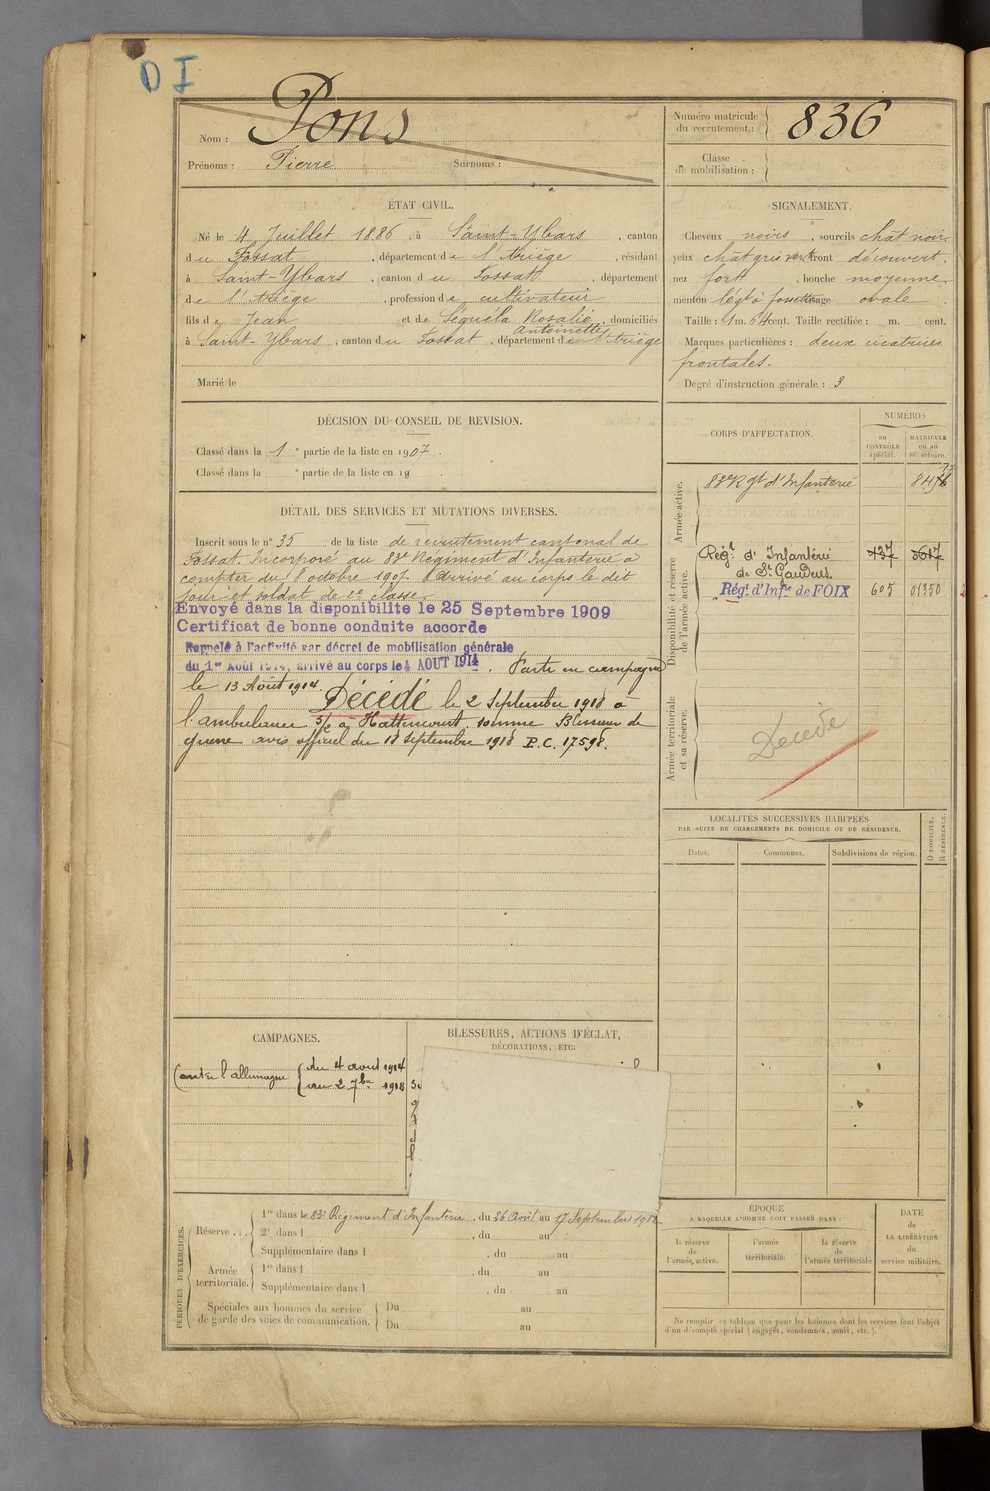 I O
Nom : Pons
Prénoms : Pierre Surnoms :
Numéro matricule du recrutement : 836
Classe de mobilisation :
ÉTAT CIVIL.
Né le 4 Juillet 1886, à Saint-Ybars, canton
du Fossat, département de l'Ariège, résidant
à Saint-Ybars, canton du Fossat, département
de l'Ariège, profession de cultivateur
fils de Jean et de Séguéla Rosalie Antoinette, domiciliés
à Saint-Ybars, canton du Fossat, département de l'Ariège
Marié le
SIGNALEMENT.
Cheveux noirs, sourcils chat noirs
yeux chat gris vert front découvert.
nez fort, bouche moyenne,
menton légt à fossette visage ovale
Taille : 1 m. 64 cent. Taille rectifiée : m. cent.
Marques particulières : deux cicatrices
frontales.
Degré d'instruction générale : 3
DÉCISION DU CONSEIL DE REVISION.
Classé dans la 1e partie de la liste en 1907.
Classé dans la e partie de la liste en 19 .
DÉTAIL DES SERVICES ET MUTATIONS DIVERSES.
Inscrit sous le n° 35 de la liste de recrutement cantonal de
Fossat. Incorporé au 83e Régiment d'Infanterie à
compter du 8 octobre 1907. Arrivé au corps le dit
jour et soldat de 2e classe.
Envoyé dans la disponibilite le 25 Septembre 1909
Certificat de bonne conduite accorde
Rappelé à l'activité par décret de mobilisation générale
du 1er Août 1914, arrivé au corps le 4 AOUT 1914. Parti en campagne
le 13 Août 1914. Décédé le 2 Septembre 1918 à
l'ambulance 5/2 à Hattencourt, somme. Blessures de
guerre avis officiel du 18 septembre 1918 P.C. 17598.
CORPS D'AFFECTATION.
NUMÉROS
au CONTRÔLE spécial.
MATRICULE ou au répertoire.
Armée active.
83e Rgt d'Infanterie
Disponibilité et réserve de l'armée active.
Régt d'Infanterie 137 3617
de St Gaudens
Régt d'Infie de FOIX 605 01350
Armée territoriale et sa réserve.
Décédé
LOCALITÉS SUCCESSIVES HABITÉES
PAR SUITE DE CHANGEMENTS DE DOMICILE OU DE RÉSIDENCE.
Dates. Communes. Subdivisions de région. D DOMICILE. R RÉSIDENCE.
CAMPAGNES.
Contre l'allemagne { du 4 aout 1914
au 2 7bre 1918
BLESSURES, ACTIONS D'ÉCLAT,
DÉCORATIONS, ETC.
PÉRIODES D'EXERCICES.
Réserve... 1re dans le 83e Régiment d'Infanterie, du 26 Août au 17 Septembre 1912
2e dans l , du au
Supplémentaire dans l , du au
Armée territoriale. 1re dans l , du au
Supplémentaire dans l , du au
Spéciales aux hommes du service de garde des voies de communication. Du au
Du au
ÉPOQUE
A LAQUELLE L'HOMME DOIT PASSER DANS :
la réserve de l'armée active.
l'armée territoriale.
la réserve de l'armée territoriale
DATE de LA LIBÉRATION du service militaire.
Ne remplir ce tableau que pour les hommes dont les services font l'objet
d'un décompte spécial (engagés, condamnés, omis, etc.).